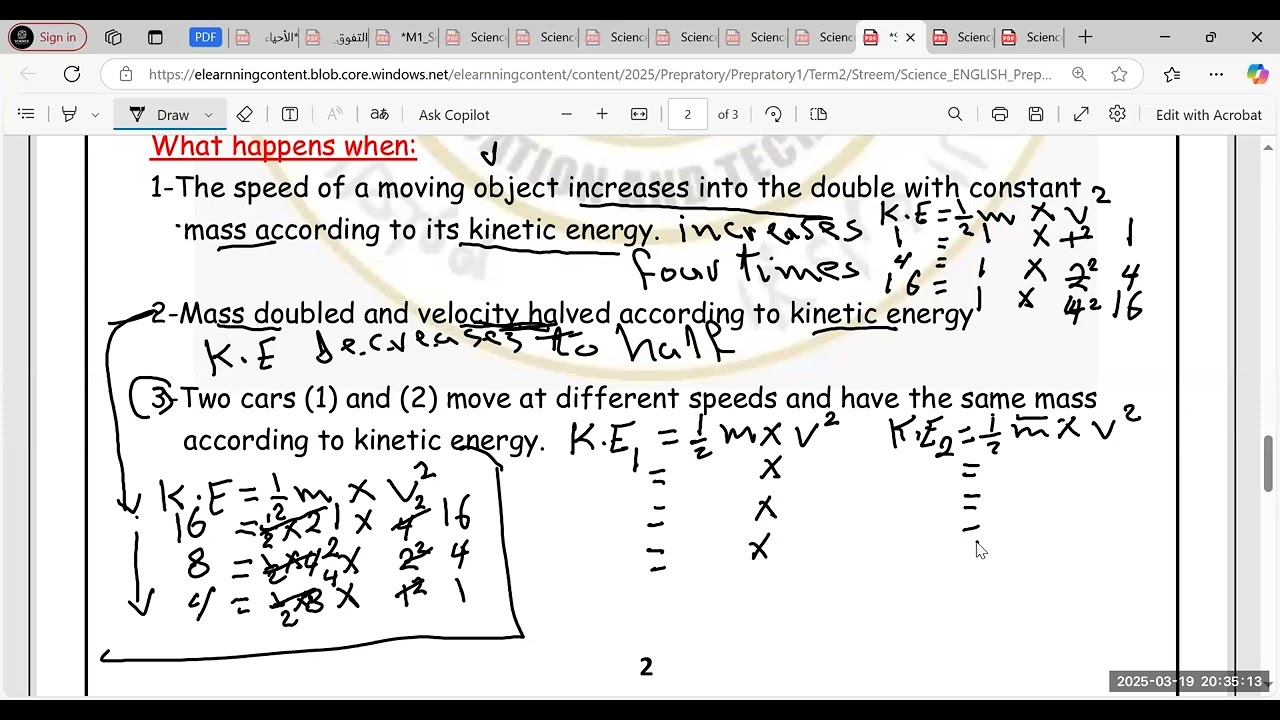 Sign in
PDF
الأحياء*
التفوق
*M1_S
Scienc
Scienc
Scienc
Scienc
Scienc
Scienc
*S
Scienc
Scienc
https://elearnningcontent.blob.core.windows.net/elearnningcontent/content/2025/Prepratory/Prepratory1/Term2/Streem/Science_ENGLISH_Prep...
Draw
Ask Copilot
2 of 3
Edit with Acrobat
ATION AND TECH
What happens when:
1-The speed of a moving object increases into the double with constant
mass according to its kinetic energy. increases
four times
K.E = 1/2 m x v²
1 = 1 x 1² 1
4 = 1 x 2² 4
16 = 1 x 4² 16
2-Mass doubled and velocity halved according to kinetic energy
K.E decreases to half
3-Two cars (1) and (2) move at different speeds and have the same mass
according to kinetic energy. K.E₁ = 1/2 m x v² K.E₂ = 1/2 m x v²
= x =
= x =
= x
=
K.E = 1/2 m x v²
16 = 1/2 x 2 1 x 4² 16
8 = 1/2 x 4 2 x 2² 4
4 = 1/2 x 8 4 x 1² 1
2
2025-03-19 20:35:13